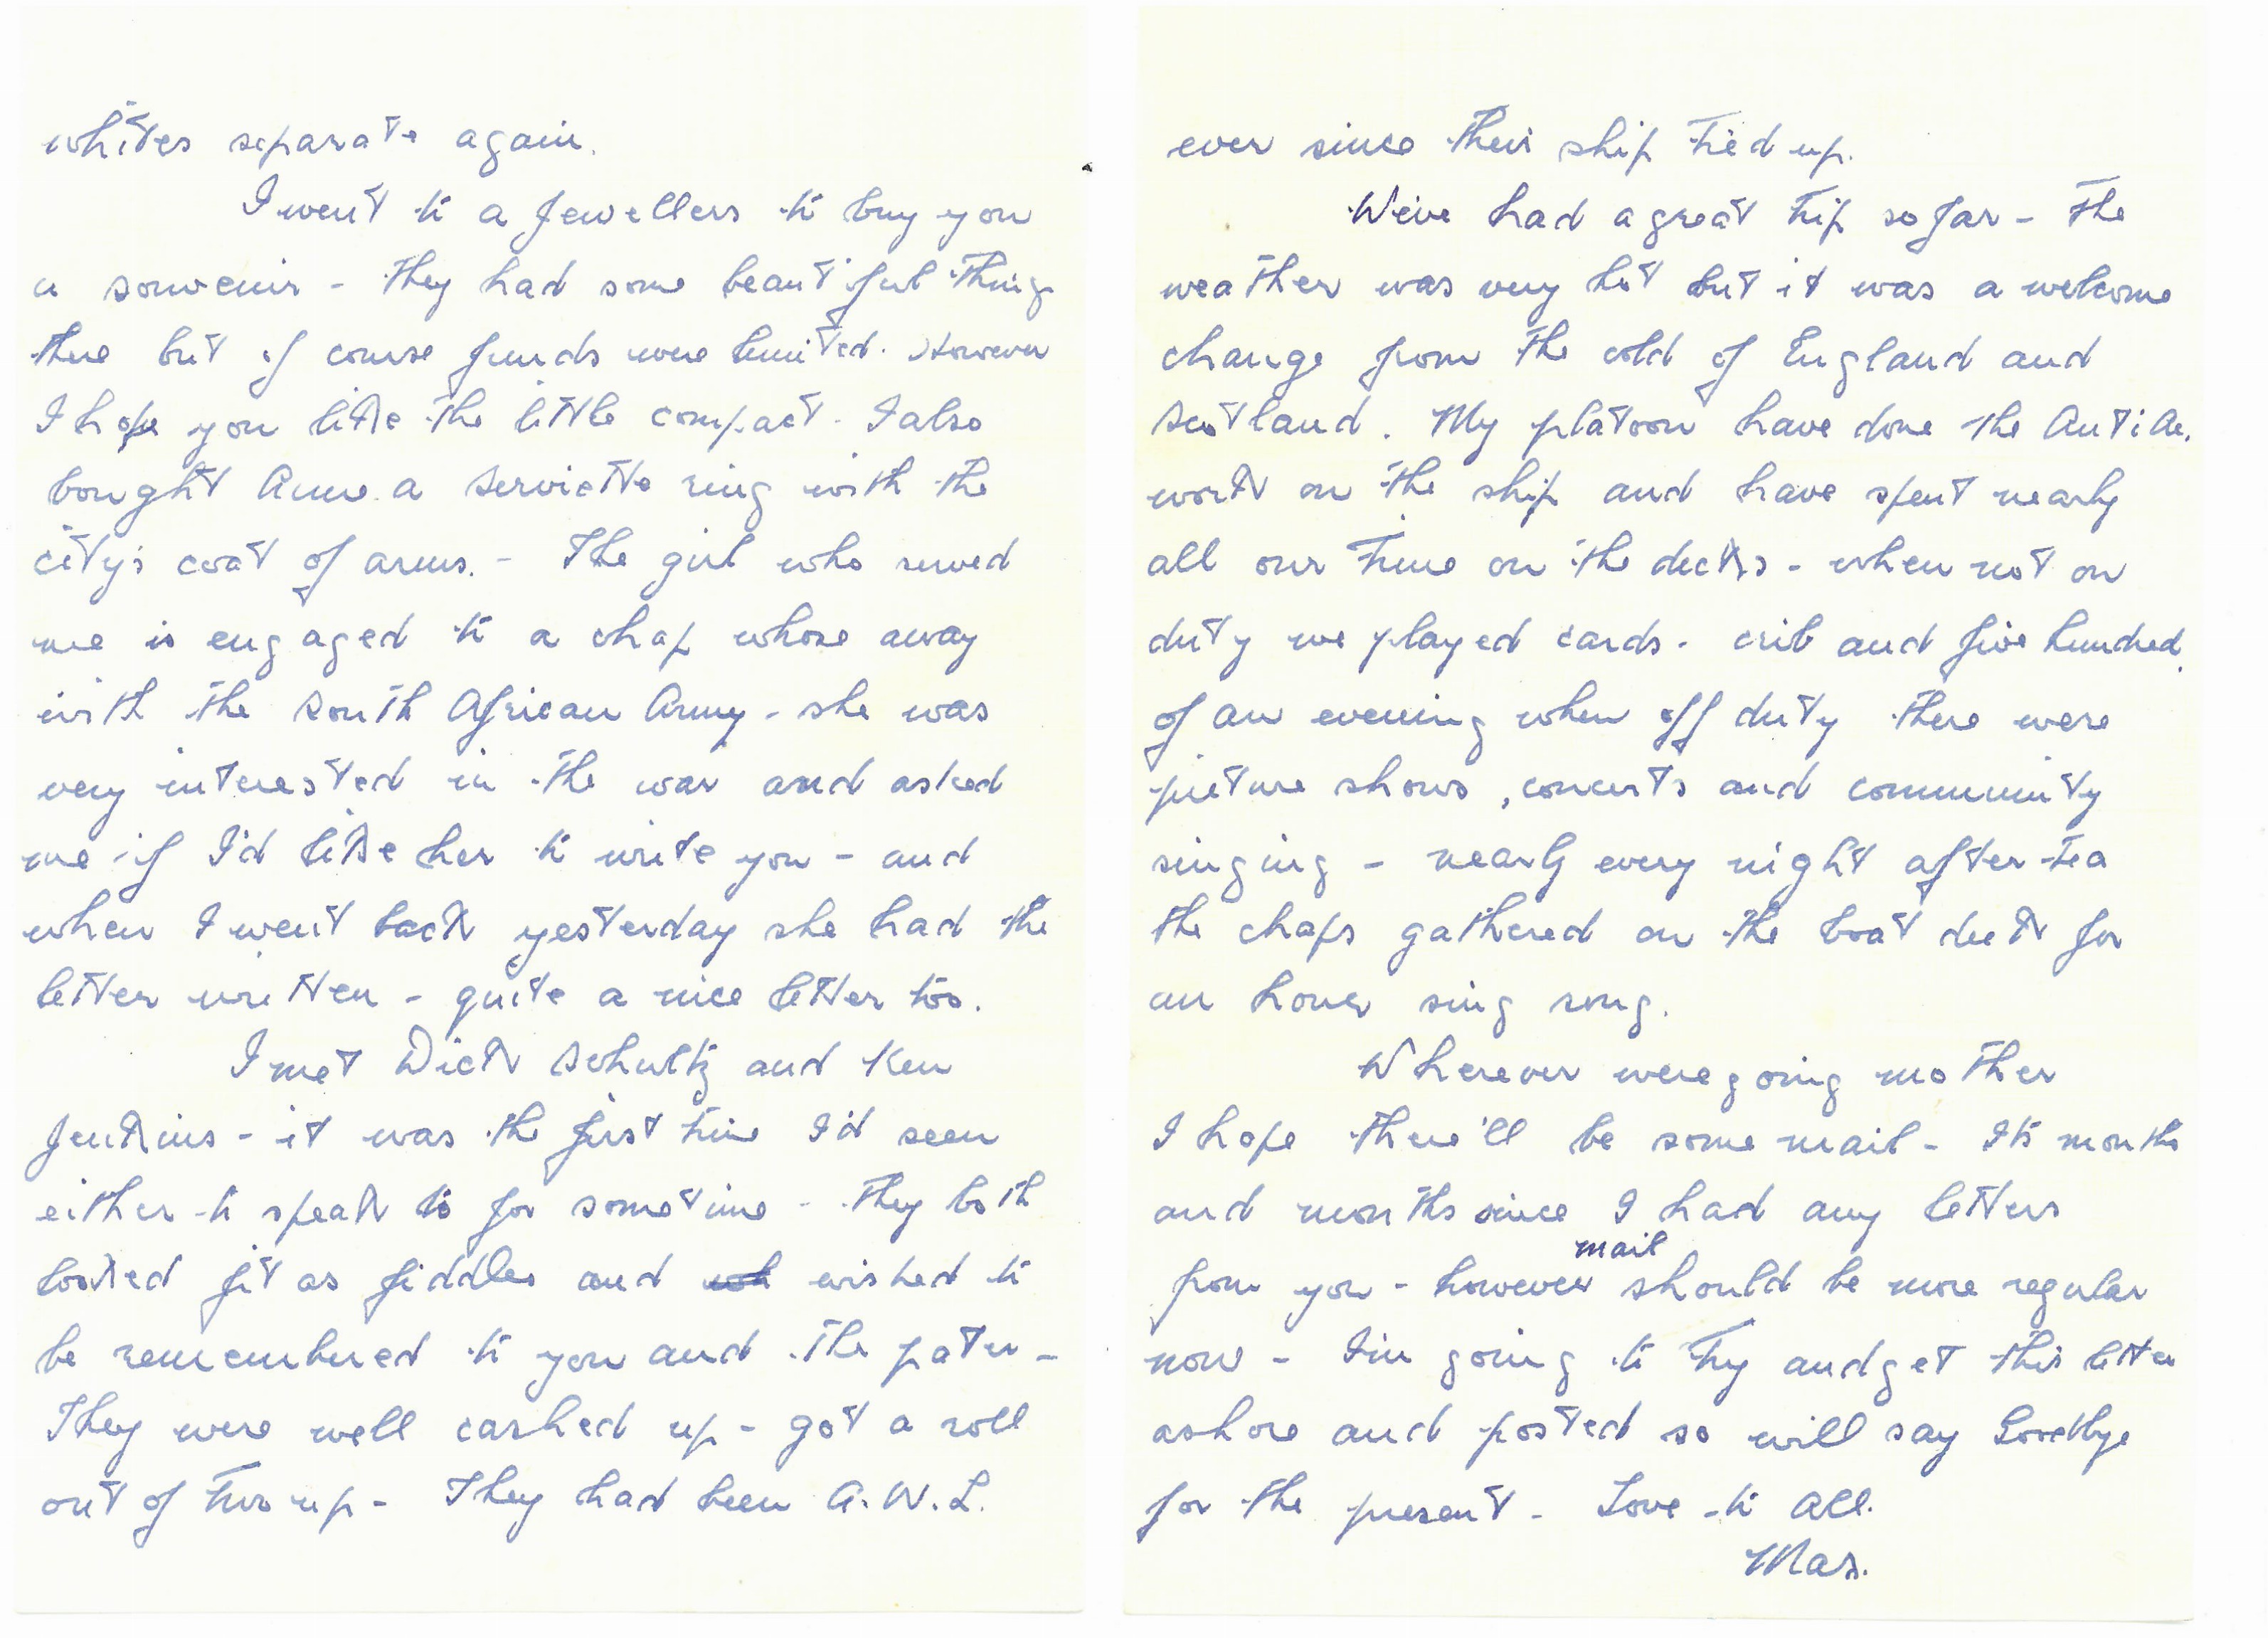 whites separate again.
I went to a Jewellers to buy you
a souvenir - they had some beautiful things
there but of course funds were limited. However
I hope you like the little compact. I also
bought Anne a serviette ring with the
city's coat of arms. - The girl who served
me is engaged to a chap whose away
with the South African Army - she was
very interested in the war and asked
me if I'd like her to write you - and
when I went back yesterday she had the
letter written - quite a nice letter too.
I met Dick Schultz and Ken
Jenkins - it was the first time I'd seen
either to speak to for sometime - they both
looked fit as fiddles and wished to
be remembered to you and the pater -
They were well cashed up - got a roll
out of two up - They had been A.W.L.
ever since their ship tied up.
We've had a great trip so far - the
weather was very hot but it was a welcome
change from the cold of England and
Scotland. My platoon have done the Anti Ac.
work on the ship and have spent nearly
all our time on the decks - when not on
duty we played cards - crib and five hundred.
of an evening when off duty there were
picture shows, concerts and community
singing - nearly every night after tea
the chaps gathered on the boat deck for
an hours sing song.
Wherever were going mother
I hope there'll be some mail - Its months
and months since I had any letters
from you - however mail should be more regular
now - I'm going to try and get this letter
ashore and posted so will say Goodbye
for the present - Love to All.
Mas.